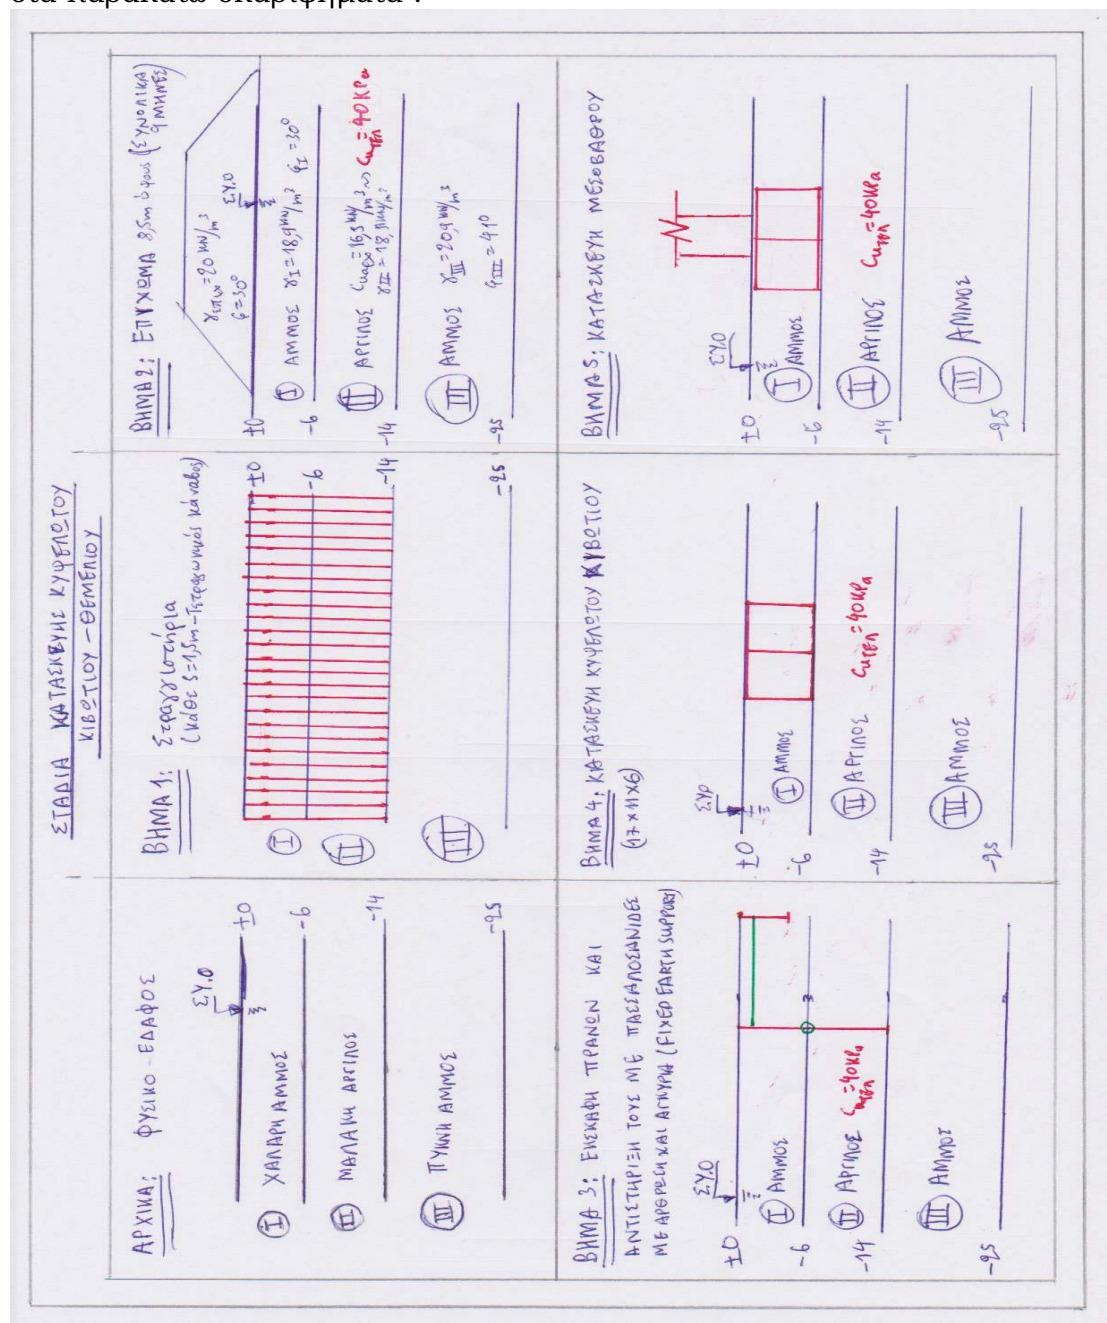 στα παρακάτω σκαριφήματα :
ΣΤΑΔΙΑ ΚΑΤΑΣΚΕΥΗΣ ΚΥΨΕΛΩΤΟΥ
ΚΙΒΩΤΙΟΥ - ΘΕΜΕΛΙΟΥ
ΑΡΧΙΚΑ: ΦΥΣΙΚΟ - ΕΔΑΦΟΣ
Σ.Υ.Ο
±0
I ΧΑΛΑΡΗ ΑΜΜΟΣ
-6
II ΜΑΛΑΚΗ ΑΡΓΙΛΟΣ
-14
III ΠΥΚΝΗ ΑΜΜΟΣ
-25
ΒΗΜΑ 1: Στραγγιστήρια
(κάθε S=1,5m - Τετραγωνικός κάναβος)
±0
I
-6
II
-14
III
-25
ΒΗΜΑ 2: ΕΠΙΧΩΜΑ 8,5m ύψους (ΣΥΝΟΛΙΚΑ
9 ΜΗΝΕΣ)
γεπιχ=20 kN/m³
φ=30°
Σ.Υ.Ο
±0
I ΑΜΜΟΣ γI=18,9 kN/m³ φI=30°
-6
II ΑΡΓΙΛΟΣ Cuαρχ=16,5 kN/m² → Cuτελ=40KPa
-14
III ΑΜΜΟΣ γIII=20,9 kN/m³
φIII=41°
-25
ΒΗΜΑ 3: ΕΚΣΚΑΦΗ ΠΡΑΝΩΝ ΚΑΙ
ΑΝΤΙΣΤΗΡΙΞΗ ΤΟΥΣ ΜΕ ΠΑΣΣΑΛΟΣΑΝΙΔΕΣ
ΜΕ ΑΡΘΡΩΣΗ ΚΑΙ ΑΓΚΥΡΙΑ (FIXED EARTH SUPPORT)
Σ.Υ.Ο
±0
I ΑΜΜΟΣ
-6
II ΑΡΓΙΛΟΣ Cuτελ=40KPa
-14
III ΑΜΜΟΣ
-25
ΒΗΜΑ 4: ΚΑΤΑΣΚΕΥΗ ΚΥΨΕΛΩΤΟΥ ΚΙΒΩΤΙΟΥ
(17×11×6)
Σ.Υ.Ο
±0
I ΑΜΜΟΣ
-6
II ΑΡΓΙΛΟΣ Cuτελ=40KPa
-14
III ΑΜΜΟΣ
-25
ΒΗΜΑ 5: ΚΑΤΑΣΚΕΥΗ ΜΕΣΟΒΑΘΡΟΥ
Σ.Υ.Ο
±0
I ΑΜΜΟΣ
-6
II ΑΡΓΙΛΟΣ Cuτελ=40KPa
-14
III ΑΜΜΟΣ
-25